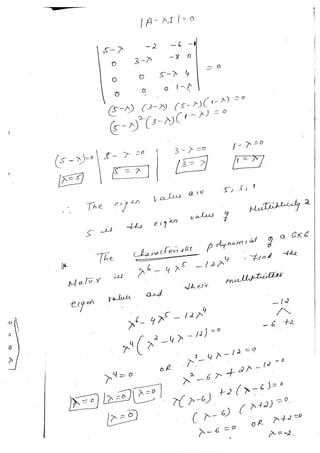 |A-λI|=0
5-λ -2 -6 -1
0 3-λ -8 0
0 0 5-λ 4 = 0
0 0 0 1-λ
(5-λ) (3-λ) (5-λ)(1-λ) = 0
(5-λ)²(3-λ)(1-λ) = 0
(5-λ)=0 | 5-λ=0 | 3-λ=0 | 1-λ=0
λ=5 | 5=λ | 3=λ | 1=λ
∴ The eigen values are 5, 3, 1
5 is the eigen value of Multiplicity 2
* The characteristic polynomial of a 6x6
Matrix is λ⁶-4λ⁵-12λ⁴ - find the
eigen values and their multiplicities
λ⁶-4λ⁵-12λ⁴ -12
λ⁴(λ²-4λ-12)=0 -6 +2
λ⁴=0 OR λ²-4λ-12=0
λ²-6λ+2λ-12=0
λ=0 λ=0 λ=0 λ(λ-6)+2(λ-6)=0
λ=0 (λ-6)(λ+2)=0
λ-6=0 OR λ+2=0
λ=-2